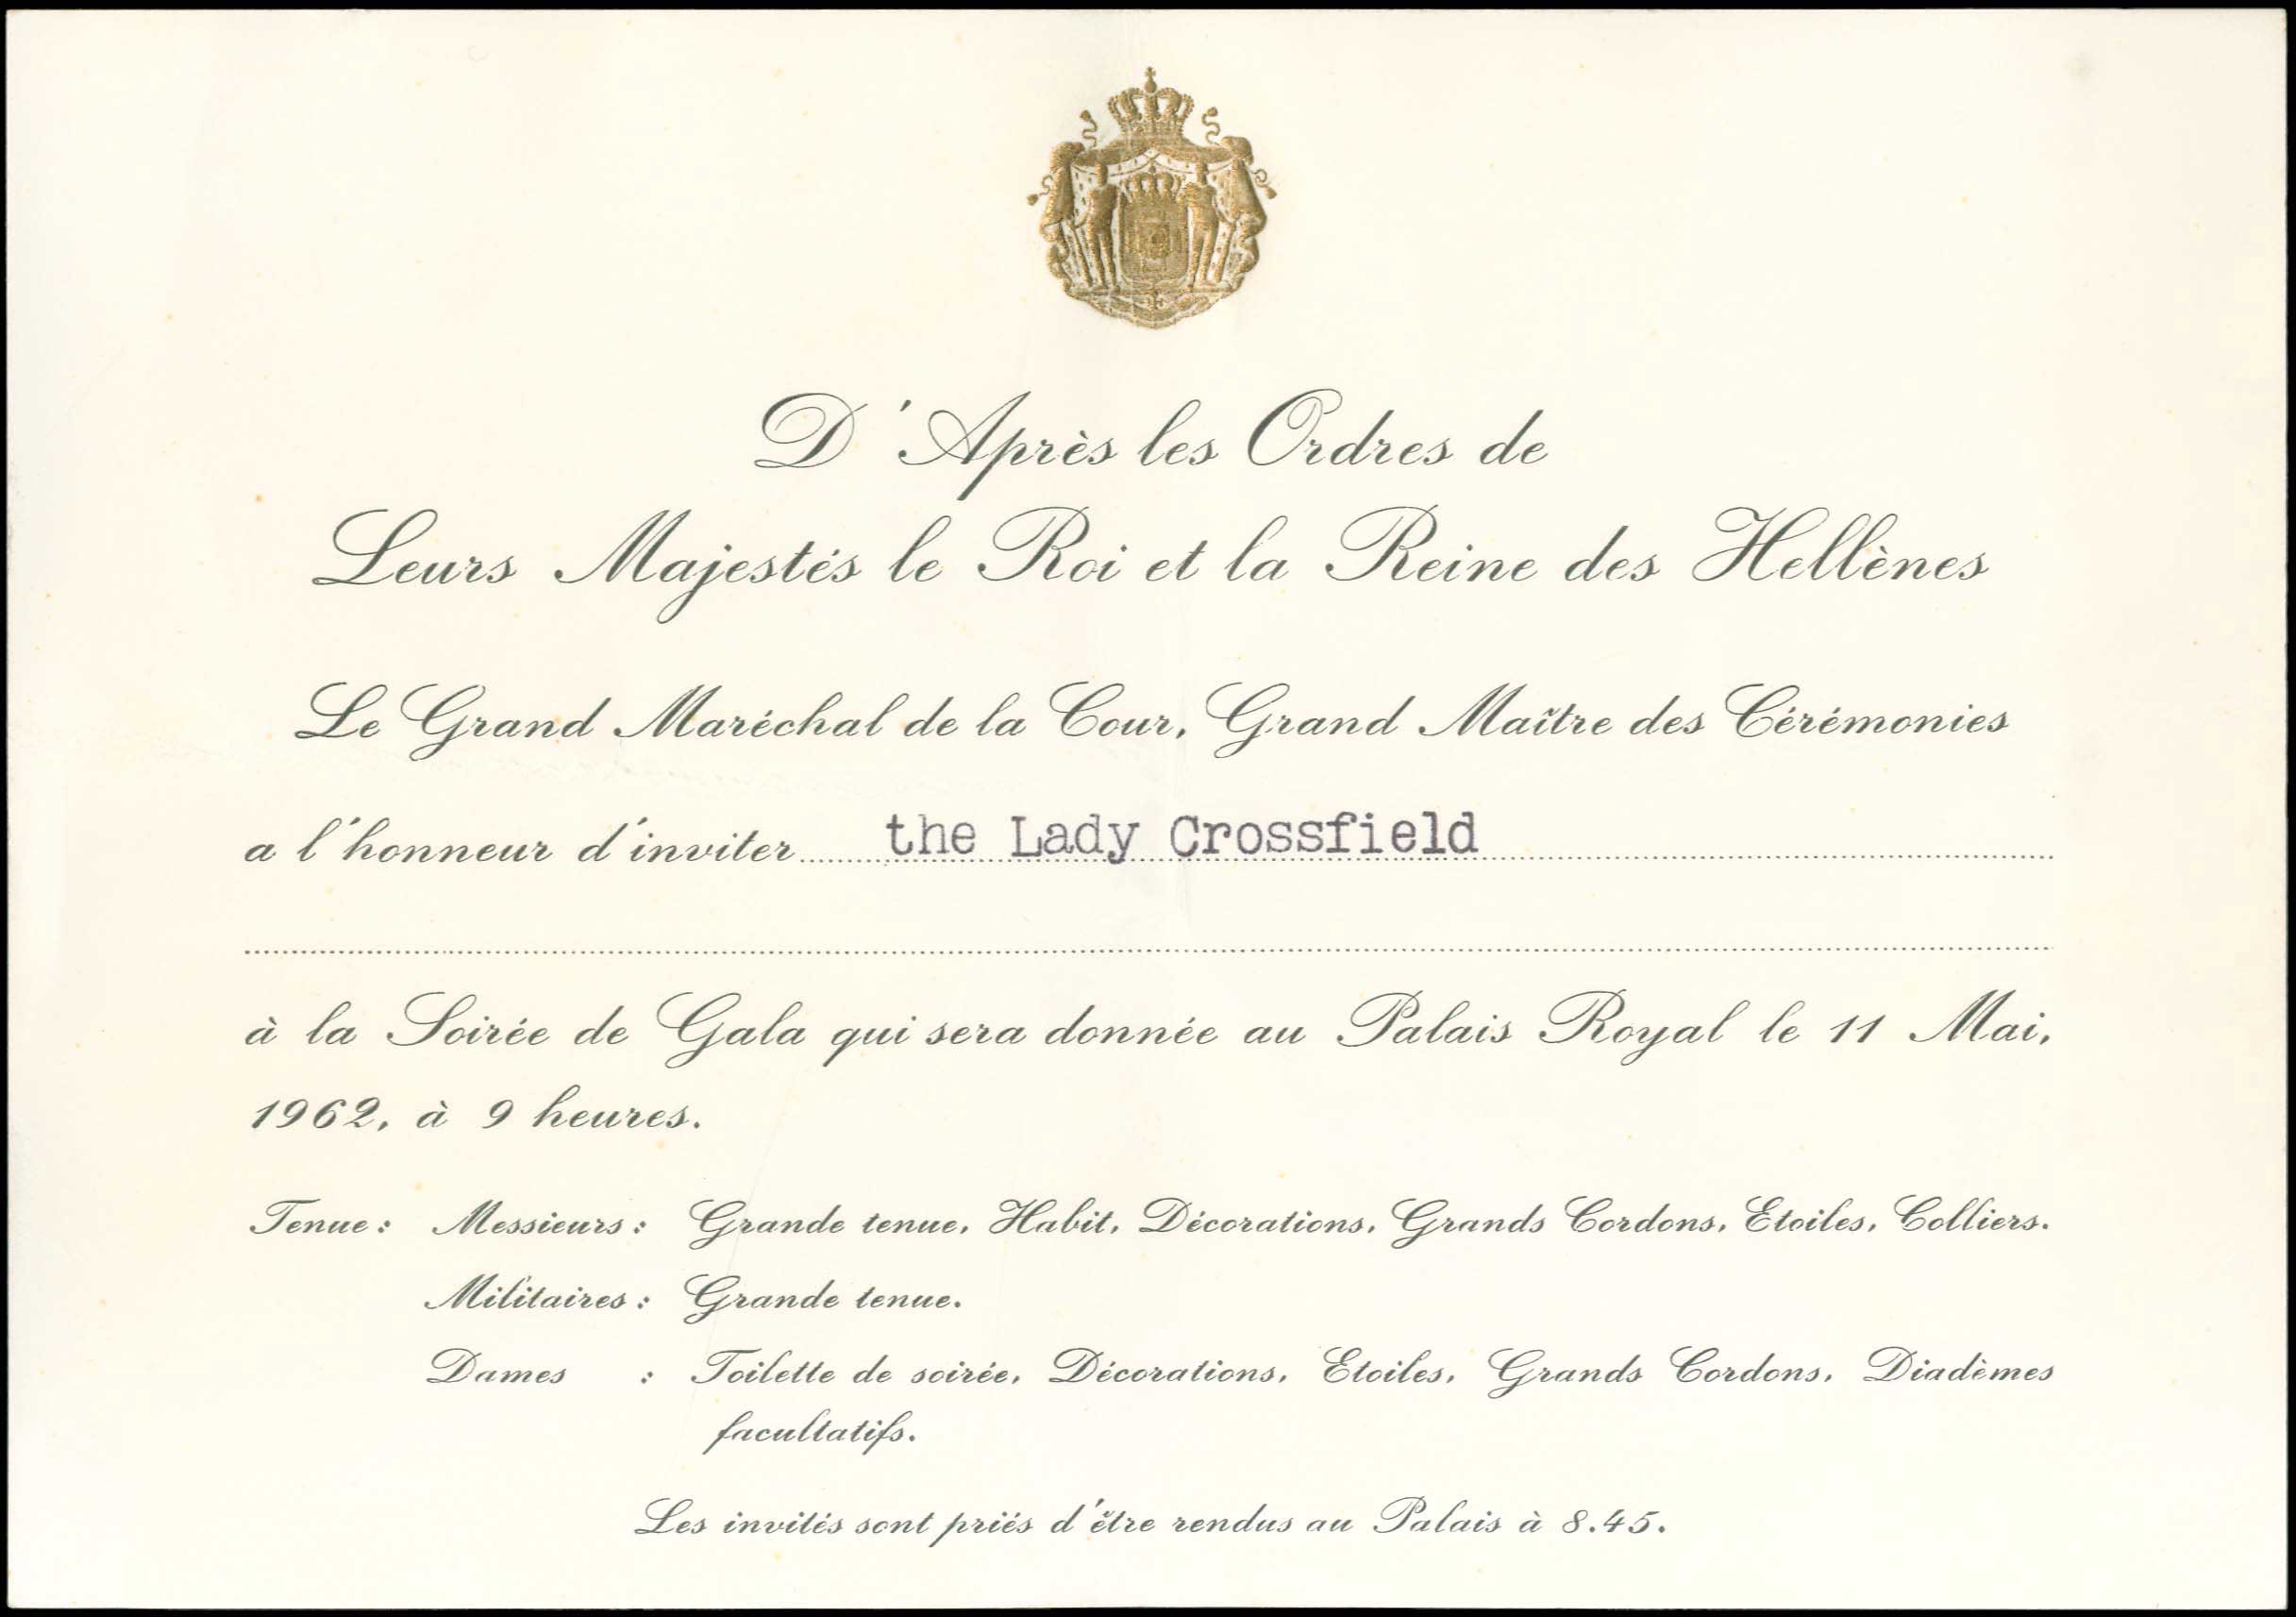 D'Après les Ordres de
Leurs Majestés le Roi et la Reine des Hellènes
Le Grand Maréchal de la Cour, Grand Maître des Cérémonies
a l'honneur d'inviter the Lady Crossfield
à la Soirée de Gala qui sera donnée au Palais Royal le 11 Mai,
1962, à 9 heures.
Tenue : Messieurs : Grande tenue, Habit, Décorations, Grands Cordons, Etoiles, Colliers.
Militaires : Grande tenue.
Dames : Toilette de soirée, Décorations, Etoiles, Grands Cordons, Diadèmes
facultatifs.
Les invités sont priés d'être rendus au Palais à 8.45.